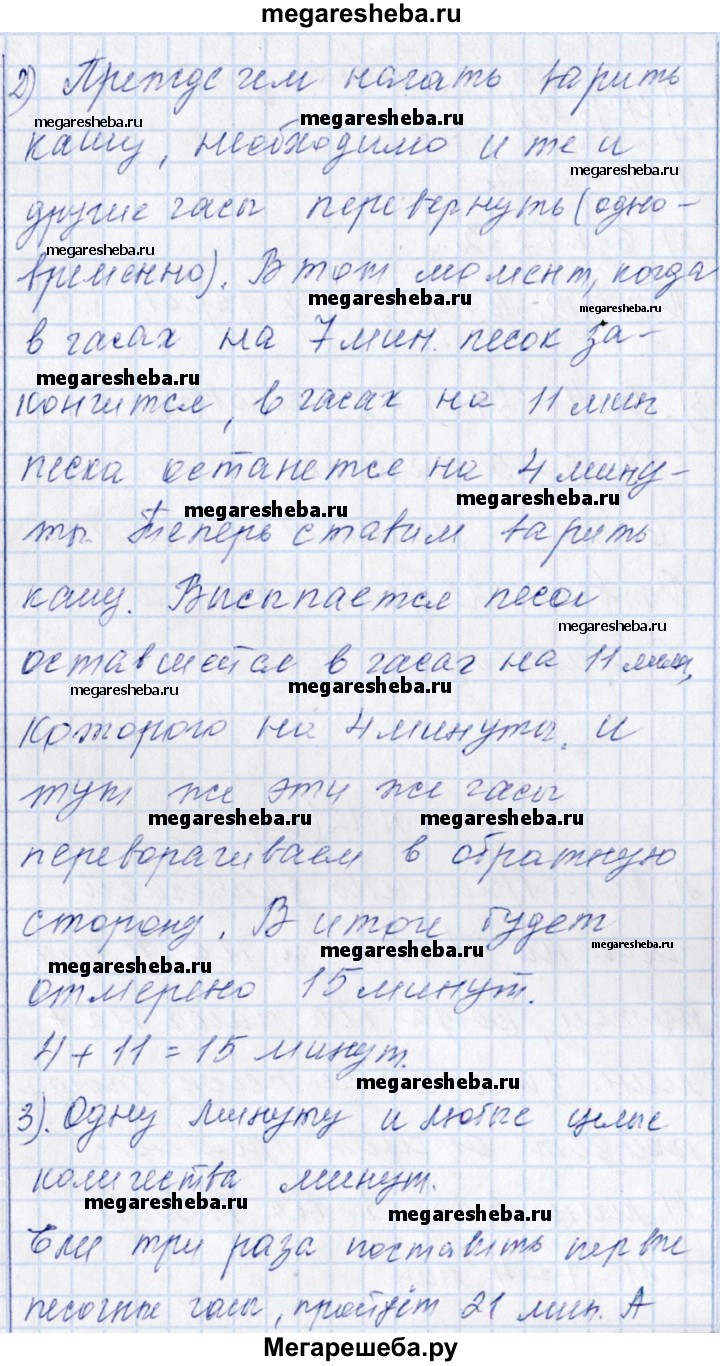 megaresheba.ru
2) Прежде чем начать варить
megaresheba.ru
megaresheba.ru
кашу, необходимо и те и
megaresheba.ru
другие часы перевернуть (одно-
megaresheba.ru
временно). В тот момент, когда
megaresheba.ru
в часах на 7 мин. песок за-
megaresheba.ru
кончится, в часах на 11 мин
песка останется на 4 мину-
megaresheba.ru
megaresheba.ru
ты. Теперь ставим варить
кашу. Высыпается песок
megaresheba.ru
оставшейся в часах на 11 мин,
megaresheba.ru
megaresheba.ru
которого на 4 минуты, и
тут же эти же часы
megaresheba.ru
megaresheba.ru
переворачиваем в обратную
сторону. В итоге будет
megaresheba.ru
megaresheba.ru
megaresheba.ru
отмерено 15 минут.
4 + 11 = 15 минут.
megaresheba.ru
3). Одну минуту и любые целые
количества минут.
megaresheba.ru
megaresheba.ru
Если три раза поставить первые
песочные часы, пройдёт 21 мин. А
Мегарешеба.ру